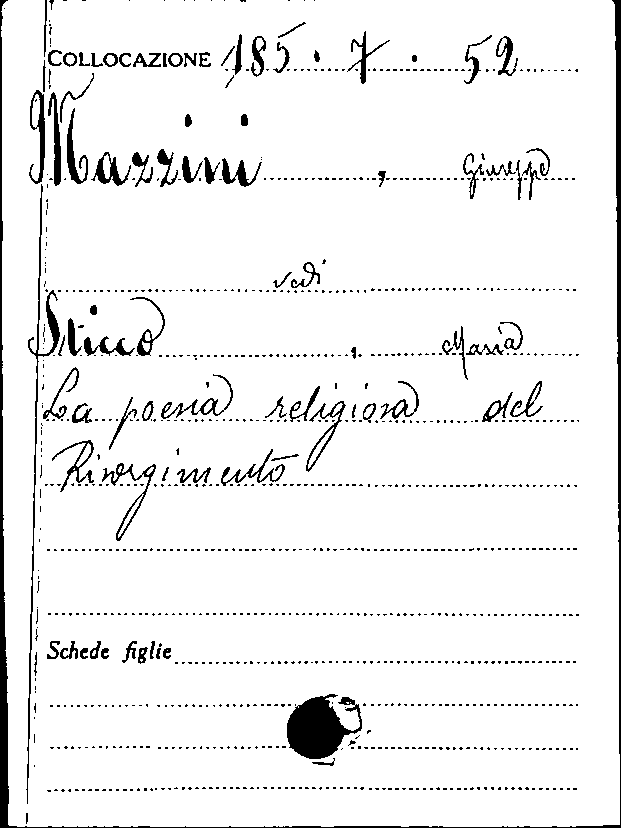 COLLOCAZIONE 185 · 7 · 52
Mazzini , Giuseppe
vedi
Sticco , Maria
La poesia religiosa del
Risorgimento
Schede figlie